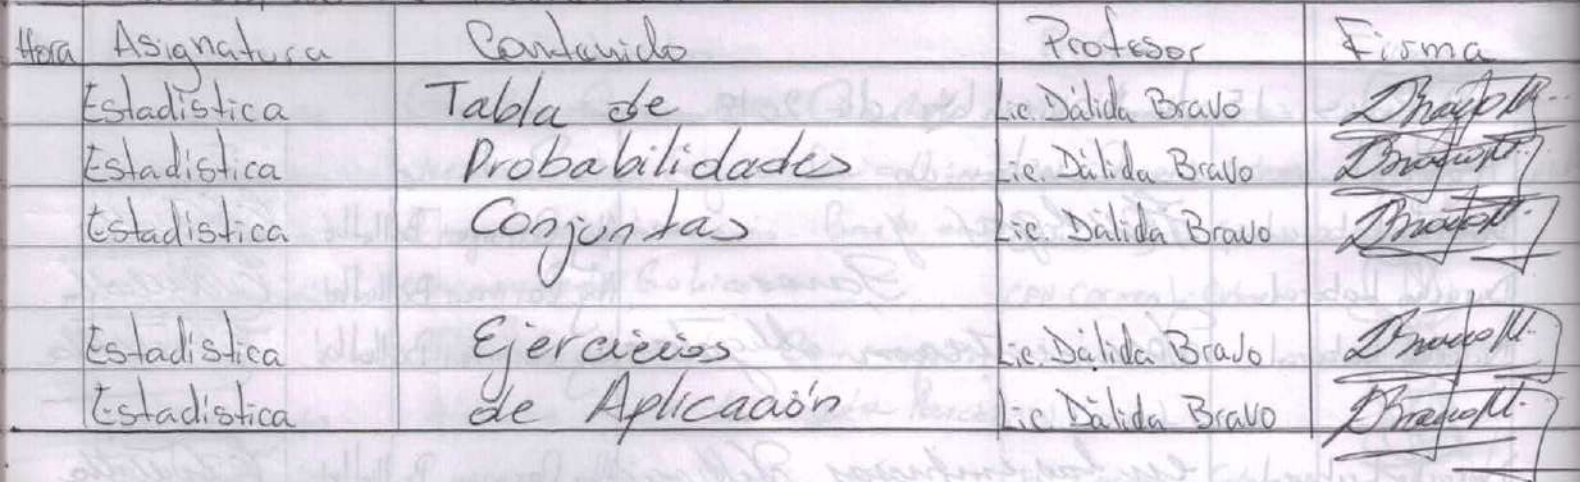 Hora Asignatura Contenido Profesor Firma
Estadística Tabla de Lic. Dálida Bravo
Estadística Probabilidades Lic. Dálida Bravo
Estadística Conjuntas Lic. Dálida Bravo
Estadística Ejercicios Lic. Dálida Bravo
Estadística de Aplicación Lic. Dálida Bravo